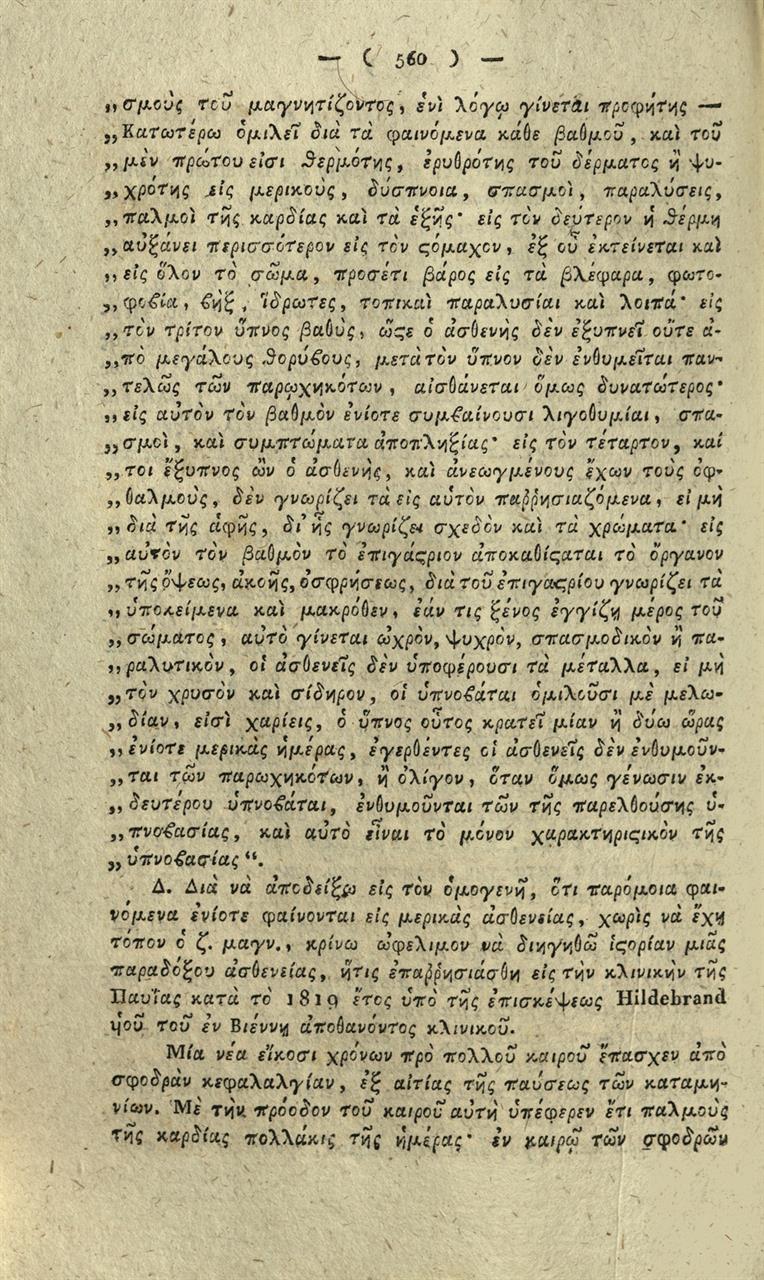 — ( 560 ) —
„σμοὺς τοῦ μαγνητίζοντος, ἑνὶ λόγῳ γίνεται προφήτης —
„Κατωτέρω ὁμιλεῖ διὰ τὰ φαινόμενα κάθε βαθμοῦ, καὶ τοῦ
„μὲν πρώτου εἰσι θερμότης, ἐρυθρότης τοῦ δέρματος ἢ ψυ-
„χρότης εἰς μερικοὺς, δύσπνοια, σπασμοὶ, παραλύσεις,
„παλμοὶ τῆς καρδίας καὶ τὰ ἑξῆς· εἰς τὸν δεύτερον ἡ θέρμη
„αὐξάνει περισσότερον εἰς τὸν ϛόμαχον, ἐξ οὗ ἐκτείνεται καὶ
„εἰς ὅλον τὸ σῶμα, προσέτι βάρος εἰς τὰ βλέφαρα, φωτο-
„φοϐία, ϐὴξ, ἵδρωτες, τοπικαὶ παραλυσίαι καὶ λοιπά· εἰς
„τὸν τρίτον ὕπνος βαθὺς, ὥϛε ὁ ἀσθενὴς δὲν ἐξυπνεῖ οὔτε ἀ-
„πὸ μεγάλους θορύϐους, μετὰ τὸν ὕπνον δὲν ἐνθυμεῖται παν-
„τελῶς τῶν παρῳχηκότων, αἰσθάνεται ὅμως δυνατώτερος·
„εἰς αὐτὸν τὸν βαθμὸν ἐνίοτε συμϐαίνουσι λιγοθυμίαι, σπα-
„σμοὶ, καὶ συμπτώματα ἀποπληξίας· εἰς τὸν τέταρτον, καί
„τοι ἔξυπνος ὢν ὁ ἀσθενὴς, καὶ ἀνεωγμένους ἔχων τοὺς ὀφ-
„θαλμοὺς, δὲν γνωρίζει τὰ εἰς αὐτὸν παῤῥησιαζόμενα, εἰ μὴ
„διὰ τῆς ἁφῆς, δι᾽ ἧς γνωρίζει σχεδὸν καὶ τὰ χρώματα· εἰς
„αὐτὸν τὸν βαθμὸν τὸ ἐπιγάϛριον ἀποκαθίϛαται τὸ ὄργανον
„τῆς ὄψεως, ἀκοῆς, ὀσφρήσεως, διὰ τοῦ ἐπιγαϛρίου γνωρίζει τὰ
„ὑποκείμενα καὶ μακρόθεν, ἐάν τις ξένος ἐγγίζῃ μέρος τοῦ
„σώματος, αὐτὸ γίνεται ὠχρὸν, ψυχρὸν, σπασμοδικὸν ἢ πα-
„ραλυτικὸν, οἱ ἀσθενεῖς δὲν ὑποφέρουσι τὰ μέταλλα, εἰ μὴ
„τὸν χρυσὸν καὶ σίδηρον, οἱ ὑπνοϐάται ὁμιλοῦσι μὲ μελω-
„δίαν, εἰσὶ χαρίεις, ὁ ὕπνος οὗτος κρατεῖ μίαν ἢ δύω ὥρας
„ἐνίοτε μερικὰς ἡμέρας, ἐγερθέντες οἱ ἀσθενεῖς δὲν ἐνθυμοῦν-
„ται τῶν παρωχηκότων, ἢ ὀλίγον, ὅταν ὅμως γένωσιν ἐκ-
„δευτέρου ὑπνοϐάται, ἐνθυμοῦνται τῶν τῆς παρελθούσης ὑ-
„πνοϐασίας, καὶ αὐτὸ εἶναι τὸ μόνον χαρακτηριϛικὸν τῆς
„ὑπνοϐασίας“.
Δ. Διὰ νὰ ἀποδείξω εἰς τὸν ὁμογενῆ, ὅτι παρόμοια φαι-
νόμενα ἐνίοτε φαίνονται εἰς μερικὰς ἀσθενείας, χωρὶς νὰ ἔχῃ
τόπον ὁ ζ. μαγν., κρίνω ὠφέλιμον νὰ διηγηθῶ ἱϛορίαν μιᾶς
παραδόξου ἀσθενείας, ἥτις ἐπαῤῥησιάσθη εἰς τὴν κλινικὴν τῆς
Παυΐας κατὰ τὸ 1819 ἔτος ὑπὸ τῆς ἐπισκέψεως Hildebrand
ὑιοῦ τοῦ ἐν Βιέννῃ ἀποθανόντος κλινικοῦ.
Μία νέα εἴκοσι χρόνων πρὸ πολλοῦ καιροῦ ἔπασχεν ἀπὸ
σφοδρὰν κεφαλαλγίαν, ἐξ αἰτίας τῆς παύσεως τῶν καταμη-
νίων. Μὲ τὴν πρόοδον τοῦ καιροῦ αὐτὴ ὑπέφερεν ἔτι παλμοὺς
τῆς καρδίας πολλάκις τῆς ἡμέρας· ἐν καιρῷ τῶν σφοδρῶν